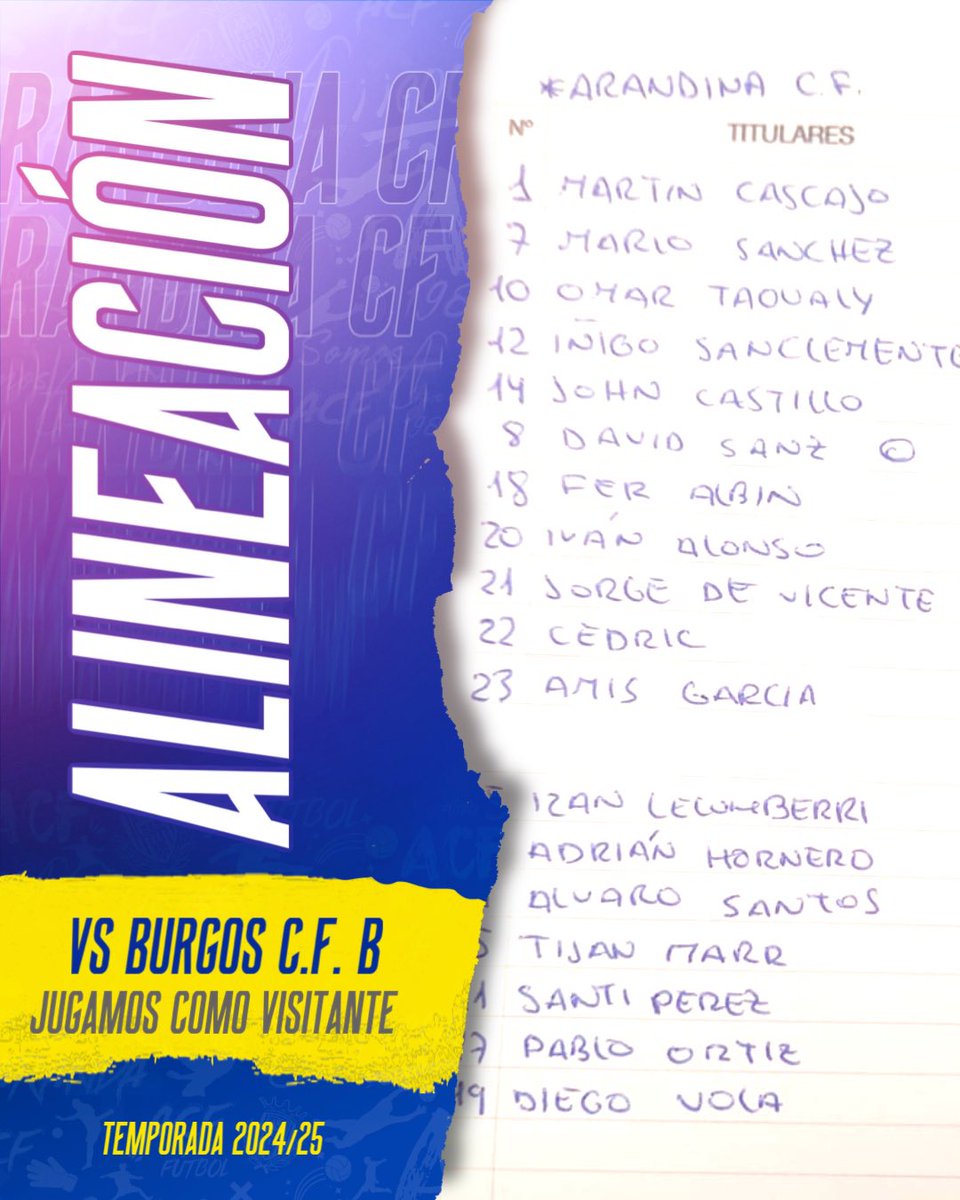 ALINEACIÓN
VS BURGOS C.F. B
JUGAMOS COMO VISITANTE
TEMPORADA 2024/25
*ARANDINA C.F.
Nº TITULARES
1 MARTIN CASCAJO
7 MARIO SANCHEZ
10 OMAR TAOUALY
12 IÑIGO SANCLEMENTE
14 JOHN CASTILLO
8 DAVID SANZ ©
18 FER ALBIN
20 IVÁN ALONSO
21 JORGE DE VICENTE
22 CÈDRIC
23 AMIS GARCIA
IZAN LECUMBERRI
ADRIÁN HORNERO
ALVARO SANTOS
5 TIJAN MARR
1 SANTI PEREZ
7 PABLO ORTIZ
19 DIEGO VOLA